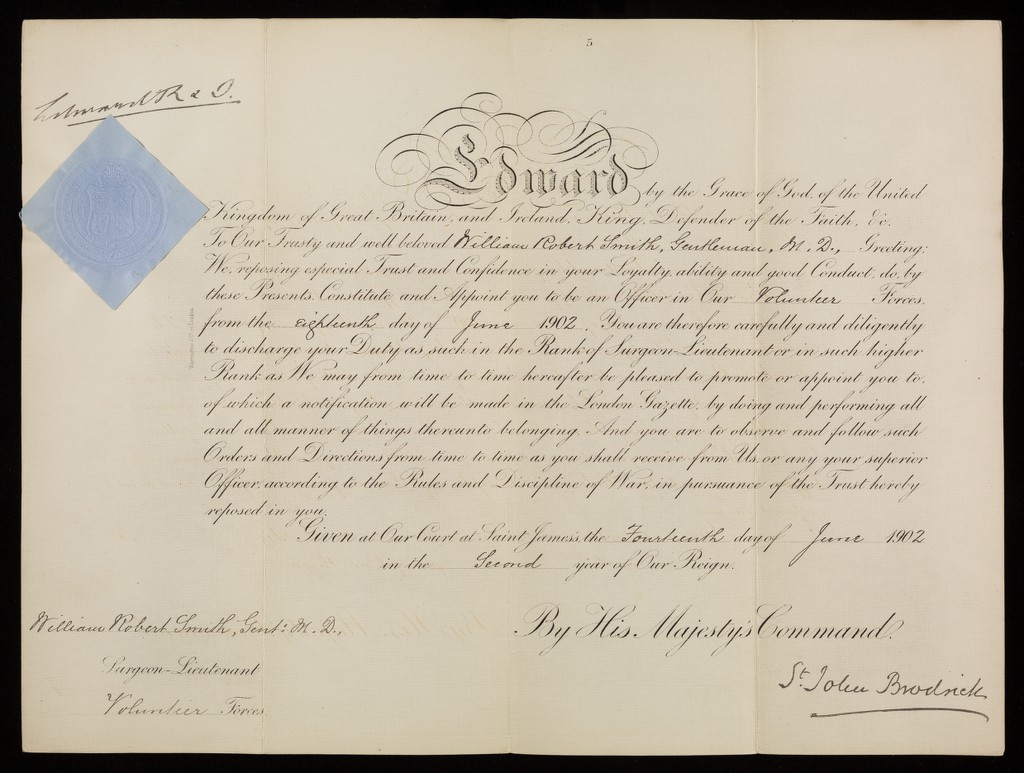 5
Edward R & I.
Edward by the Grace of God, of the United
Kingdom of Great Britain, and Ireland, King, Defender of the Faith, &c.
To Our Trusty and well beloved William Robert Smith, Gentleman, M.D., Greeting:
We, reposing especial Trust and Confidence in your Loyalty, ability and good Conduct, do, by
these Presents, Constitute and Appoint you to be an Officer in Our Volunteer Forces,
from the eighteenth day of June 1902. You are therefore carefully and diligently
to discharge your Duty as such in the Rank of Surgeon-Lieutenant or in such higher
Rank as We may from time to time hereafter be pleased to promote or appoint you to,
of which a notification will be made in the London Gazette, by doing and performing all
and all manner of things thereunto belonging. And you are to observe and follow such
Orders and Directions from time to time as you shall receive from Us, or any your superior
Officer, according to the Rules and Discipline of War, in pursuance of the Trust hereby
reposed in you.
Given at Our Court at Saint James's, the Fourteenth day of June 1902
in the Second year of Our Reign.
William Robert Smith, Gent: M.D.,
Surgeon-Lieutenant
Volunteer Forces.
By His Majesty's Command.
St. John Brodrick